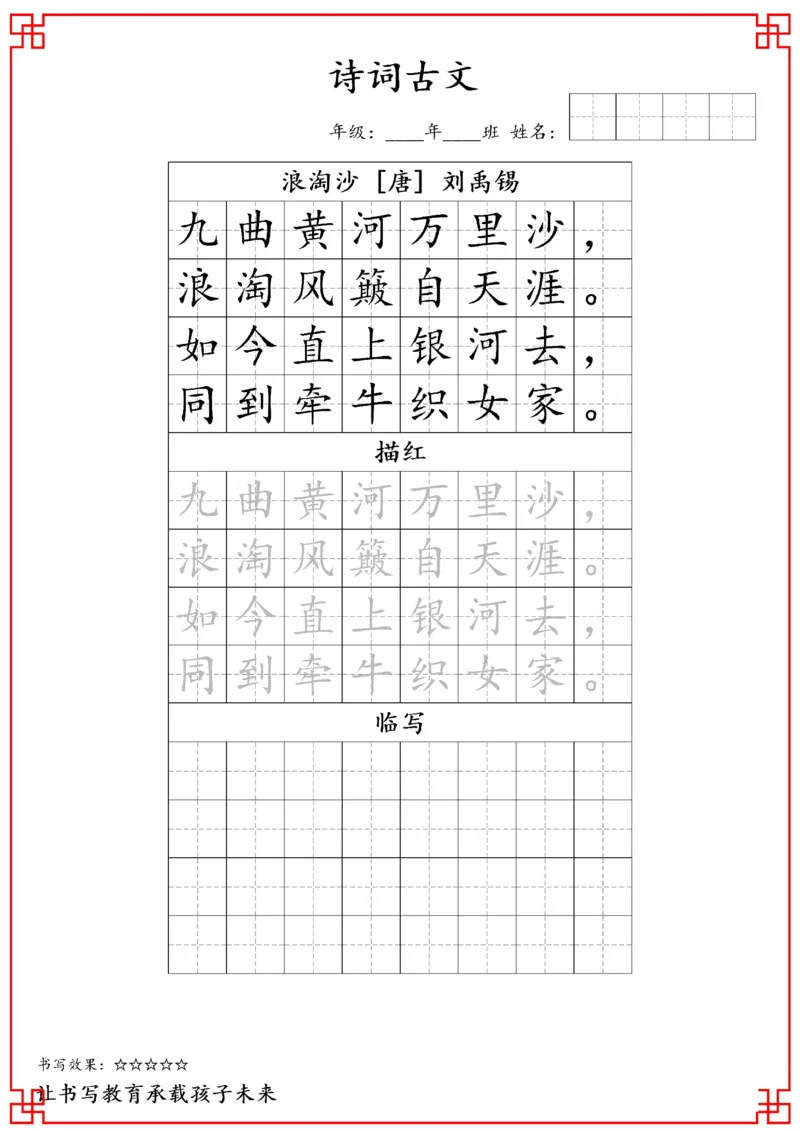 诗词古文
年级：____年____班 姓名：
浪淘沙 [唐] 刘禹锡
九曲黄河万里沙，
浪淘风簸自天涯。
如今直上银河去，
同到牵牛织女家。
描红
九曲黄河万里沙，
浪淘风簸自天涯。
如今直上银河去，
同到牵牛织女家。
临写
书写效果：☆☆☆☆☆
让书写教育承载孩子未来